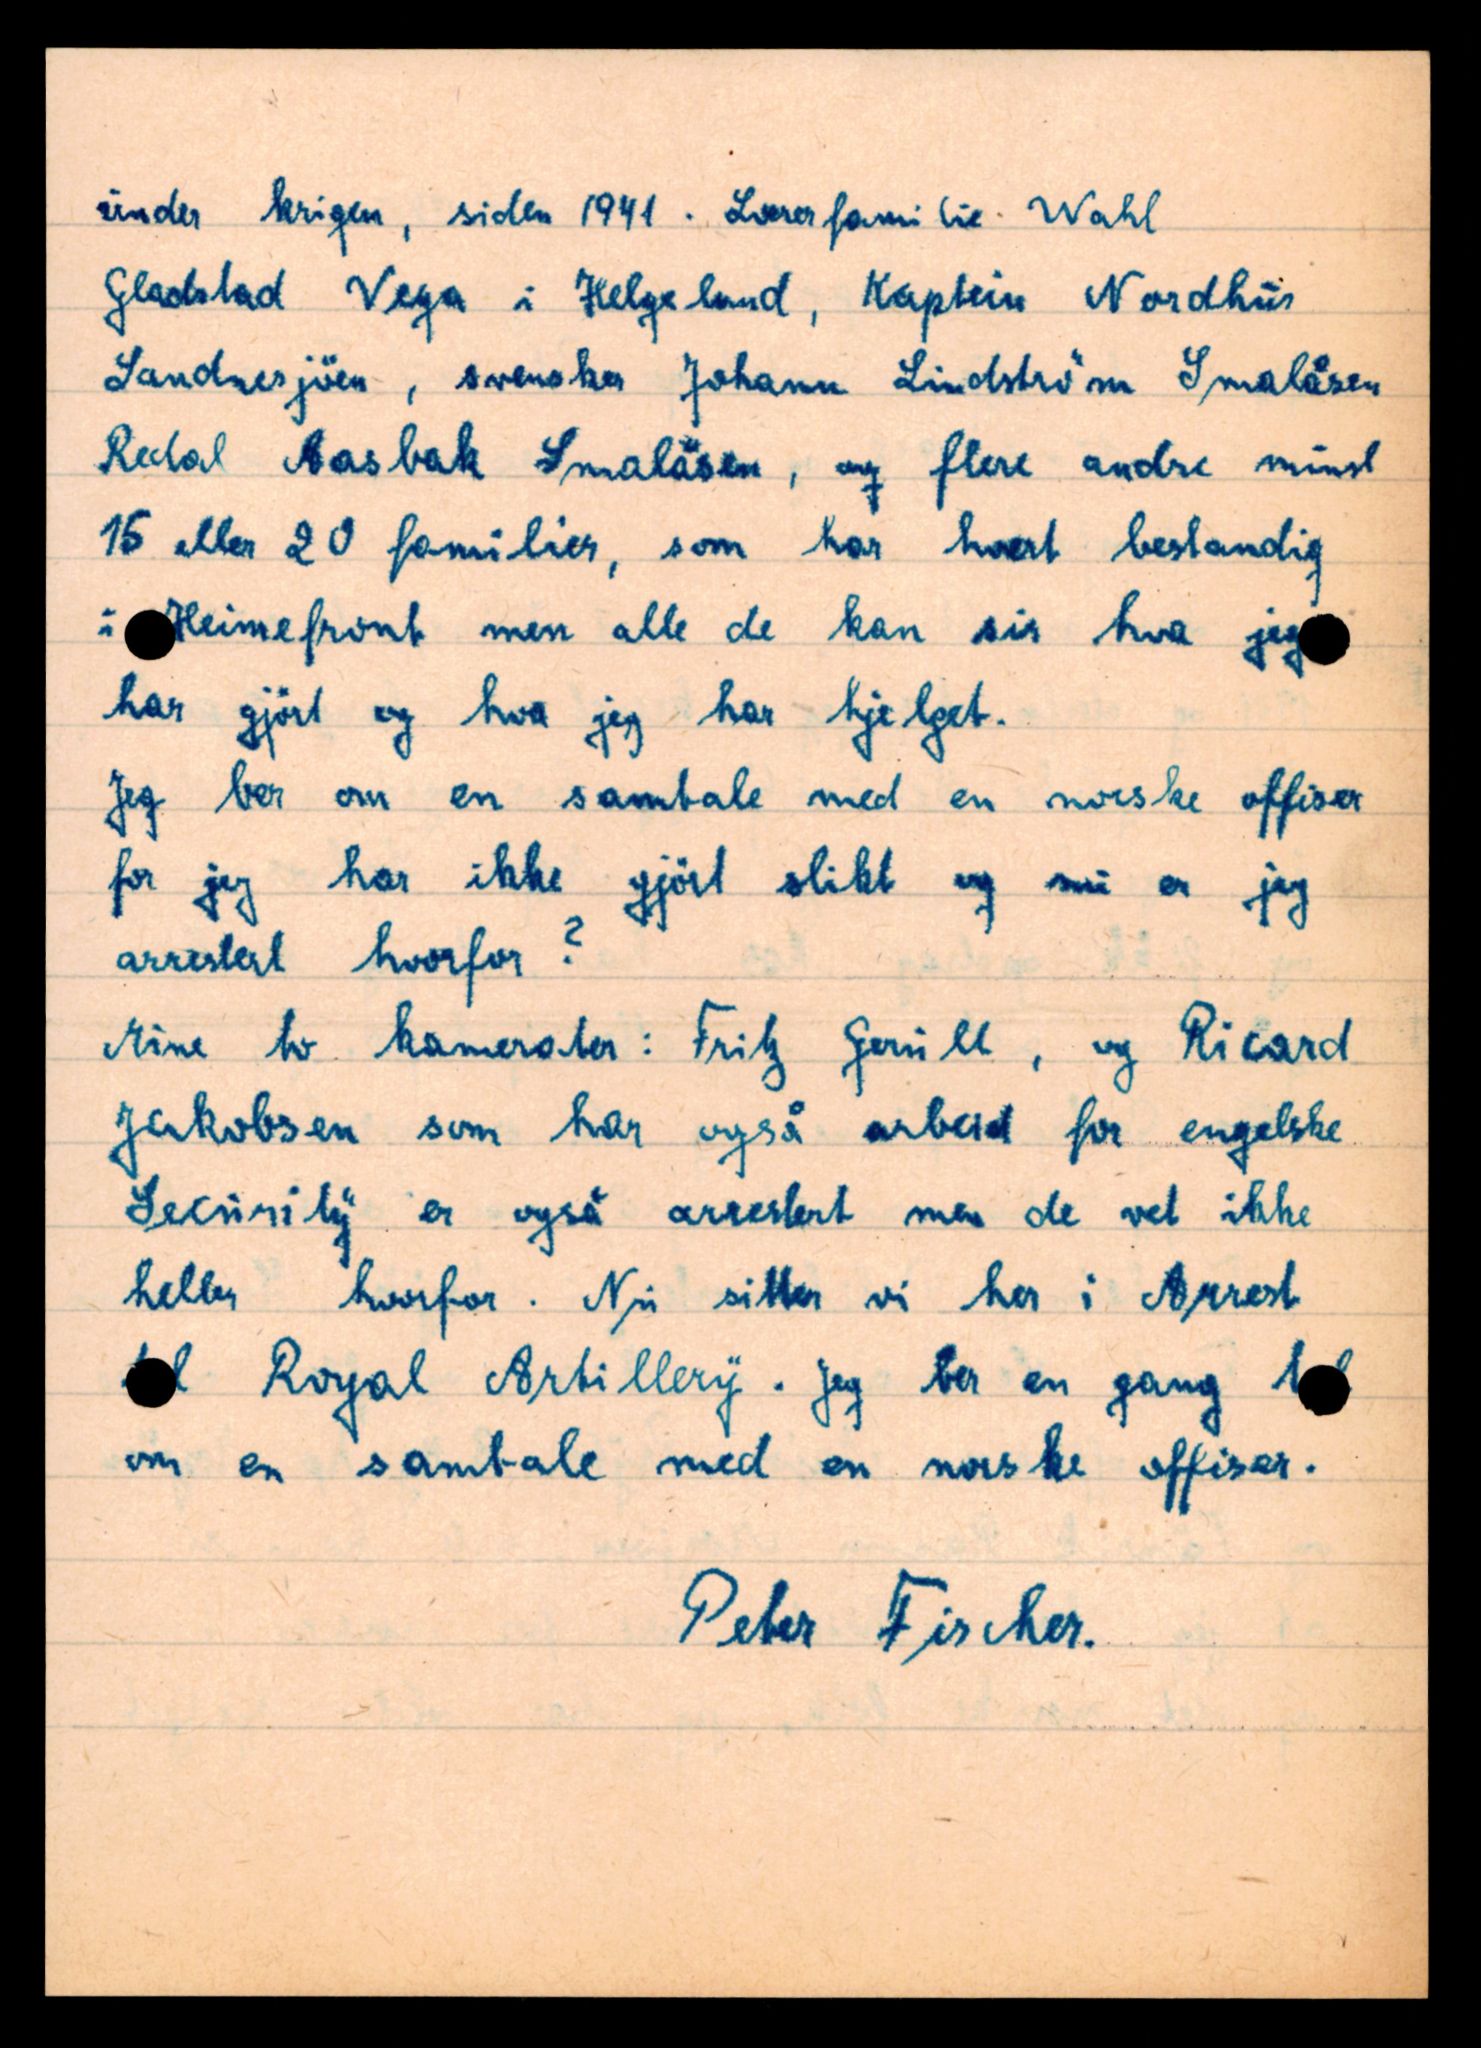 ünder krigen, siden 1941. Lærerfamilie Wahl
Gladstad Vega i Helgeland, Kaptein Nordhüs
Sandnesjöen, svensker Johann Lindström Smalåsen
Redal Aasbak Smalåsen, og flere andre minst
15 eller 20 familier, som har hvert bestandig
i Heimefront men alle de kan sir hva jeg
har gjört og hva jeg har hjelget.
Jeg ber om en samtale med en norske offiser
for jeg har ikke gjört slikt og nü er jeg
arrestert hvorfor?
Mine to kamerater: Fritz Gerüll, og Ricard
Jakobsen som har også arbeid for engelske
Secüritÿ er også arrestert men de vet ikke
heller hvorfor. Nü sitter vi her i Arrest
til Royal Artillerÿ. Jeg ber en gang til
om en samtale med en norske offiser.
Peter Fischer.